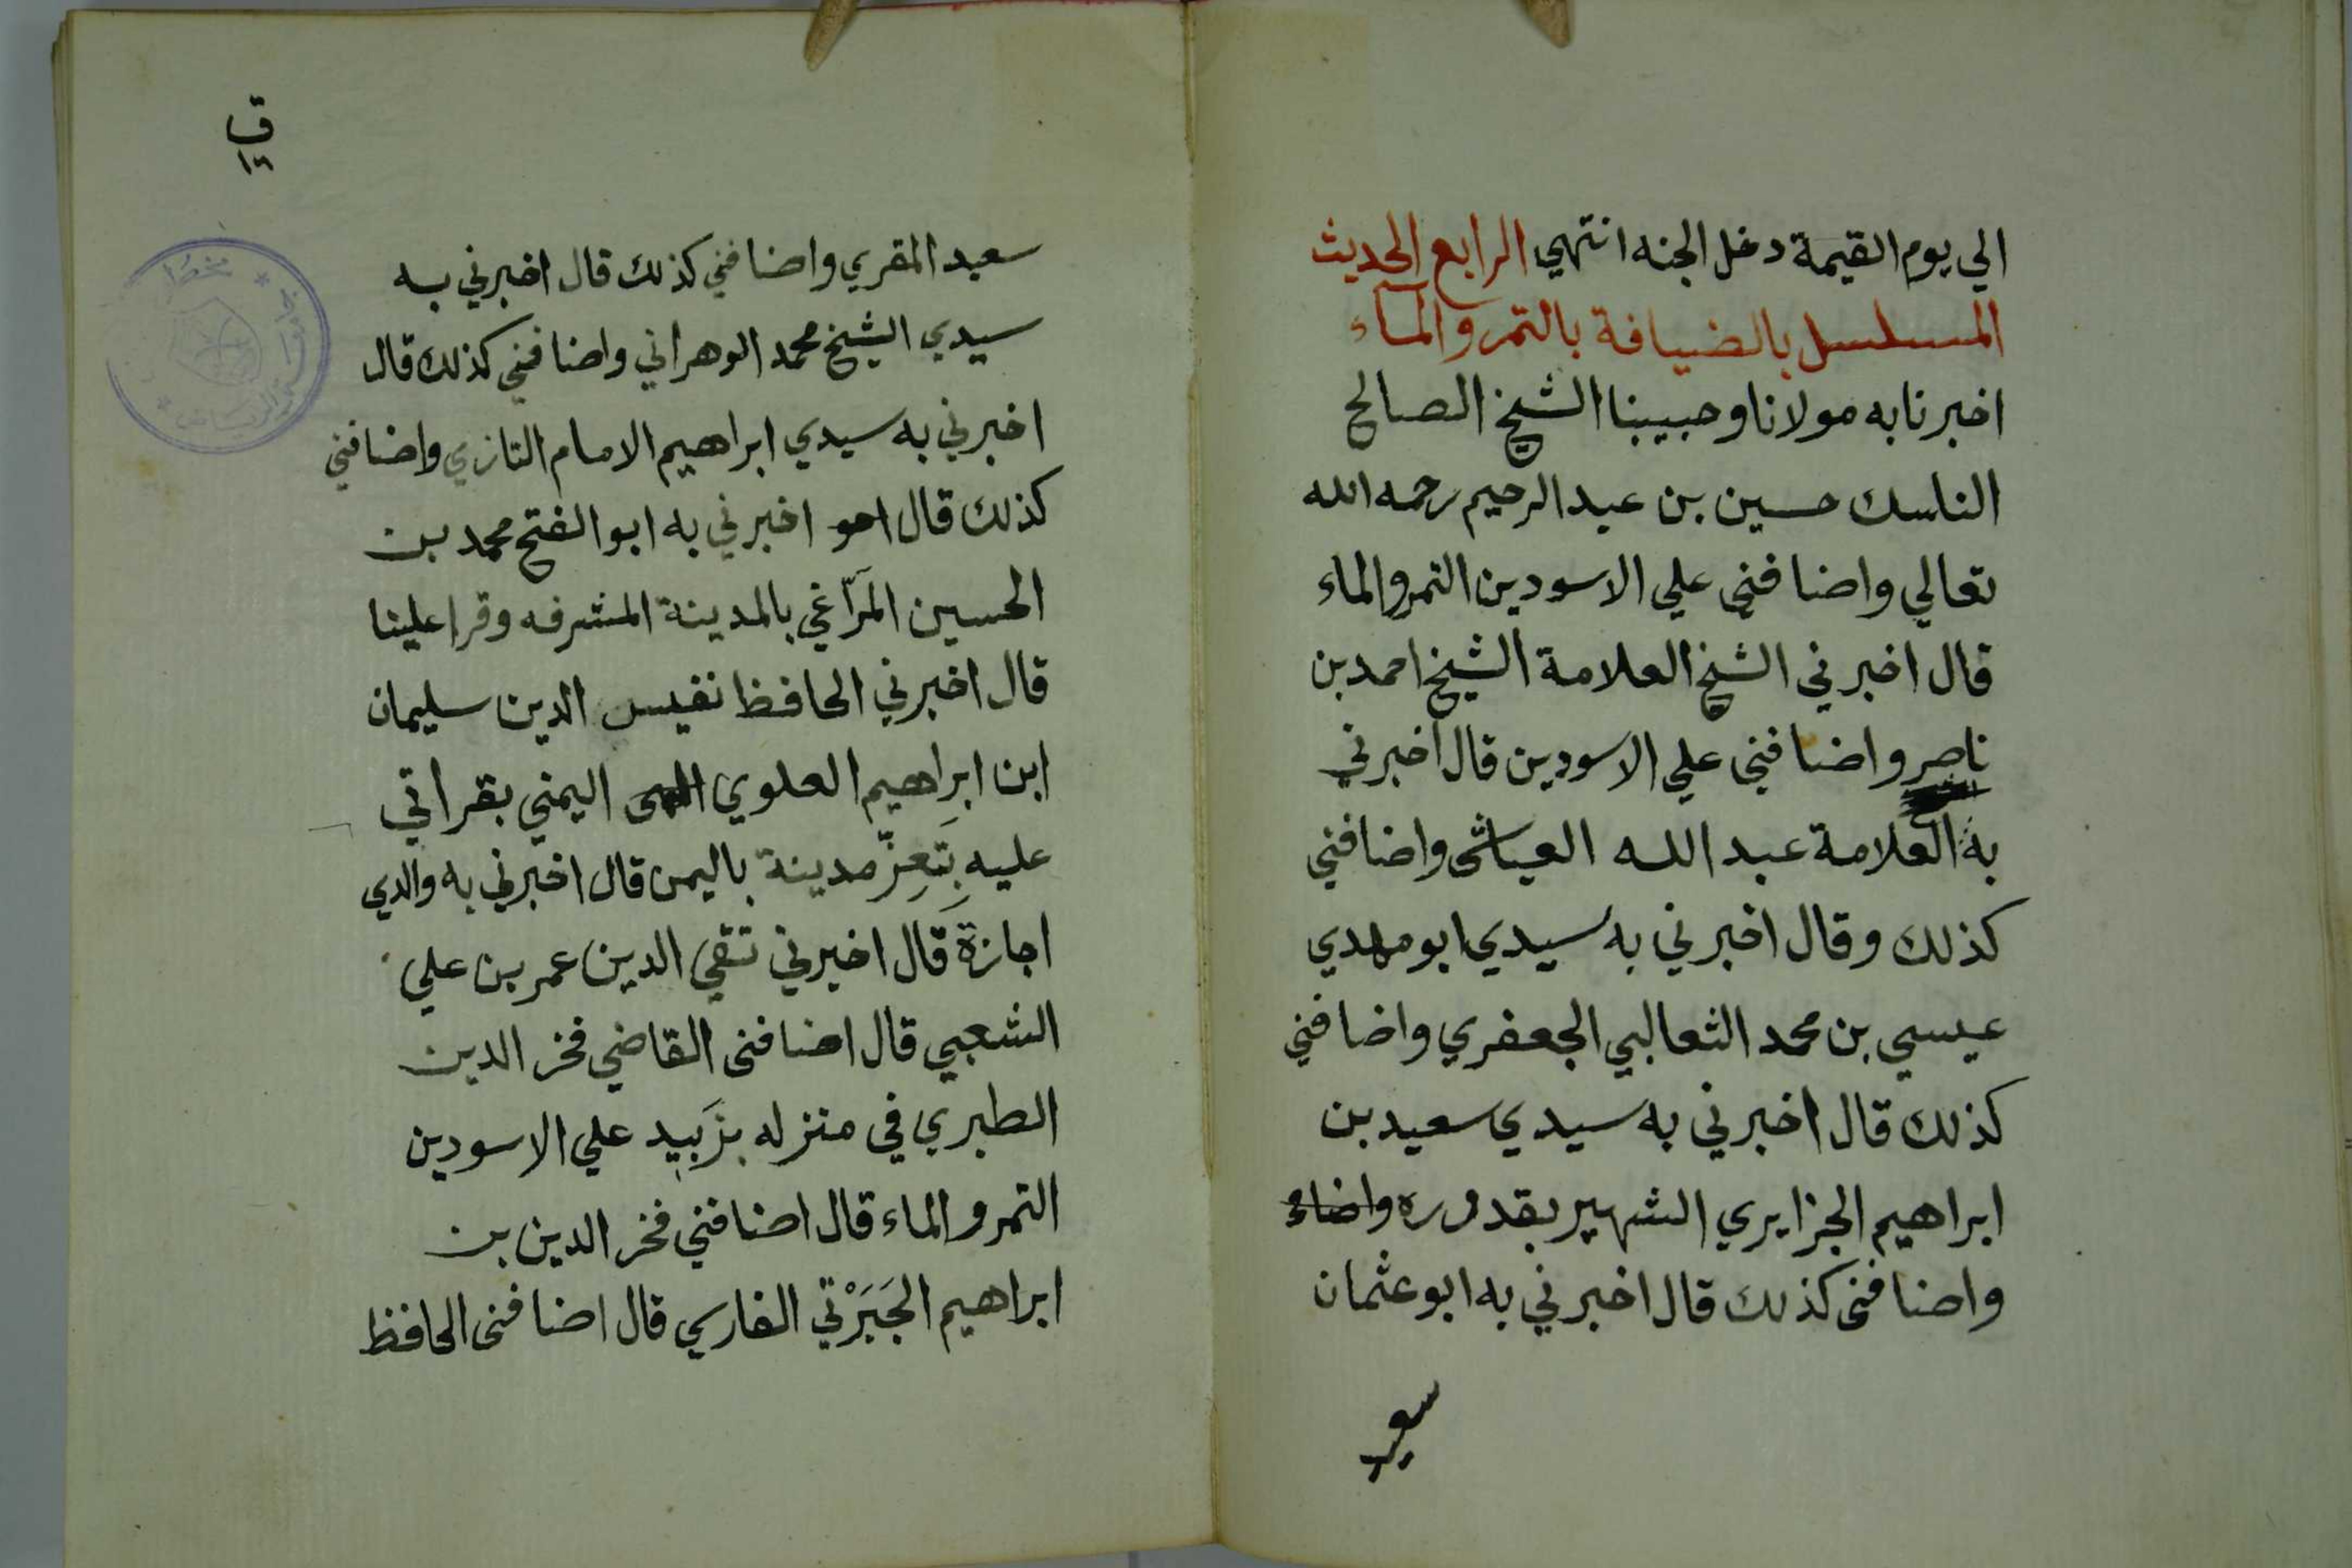 الي يوم القيمة دخل الجنه انتهي الرابع الحديث
المسلسل بالضيافة بالتمر والماء
اخبرنا به مولانا وحبيبنا الشيخ الصالح
الناسك حسين بن عبد الرحيم رحمه الله
تعالي واضافني علي الاسودين التمر والماء
قال اخبرني الشيخ العلامة الشيخ احمد بن
ناصر واضافني علي الاسودين قال اخبرني
به العلامة عبد الله العياشى واضافني
كذلك وقال اخبرني به سيدي ابو مهدي
عيسي بن محمد الثعالبي الجعفري واضافني
كذلك قال اخبرني به سيدي سعيد بن
ابراهيم الجزايري الشهير بقدوره
واضافنى كذلك قال اخبرني به ابو عثمان
سعيد
سعيد المقري واضافني كذلك قال اخبرني به
سيدي الشيخ محمد الوهراني واضافني كذلك قال
اخبرني به سيدي ابراهيم الامام التازي واضافني
كذلك قال اخبرني به ابو الفتح محمد بن
الحسين المَرّاغي بالمدينة المشرفه وقرا علينا
قال اخبرني الحافظ نفيس الدين سليمان
ابن ابراهيم العلوي اليمني بقراتي
عليه بِتَعِزّ مدينة باليمن قال اخبرني به والدي
اجازةً قال اخبرني تقي الدين عمر بن علي
الشعبي قال اضافنى القاضي فخر الدين
الطبري في منزله بزَبِيد علي الاسودين
التمر والماء قال اضافني فخر الدين بن
ابراهيم الجَبَرْتي الفارسي قال اضافنى الحافظ